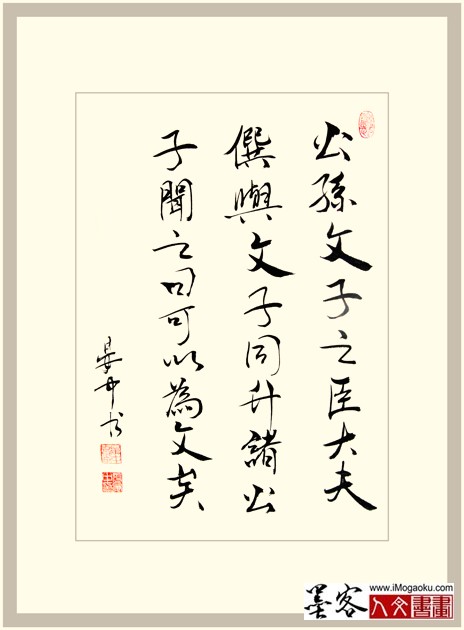 公孫文子之臣大夫
僎與文子同升諸公
子聞之曰可以為文矣
晏中书
墨客
www.iMogaoku.com
人文書畫